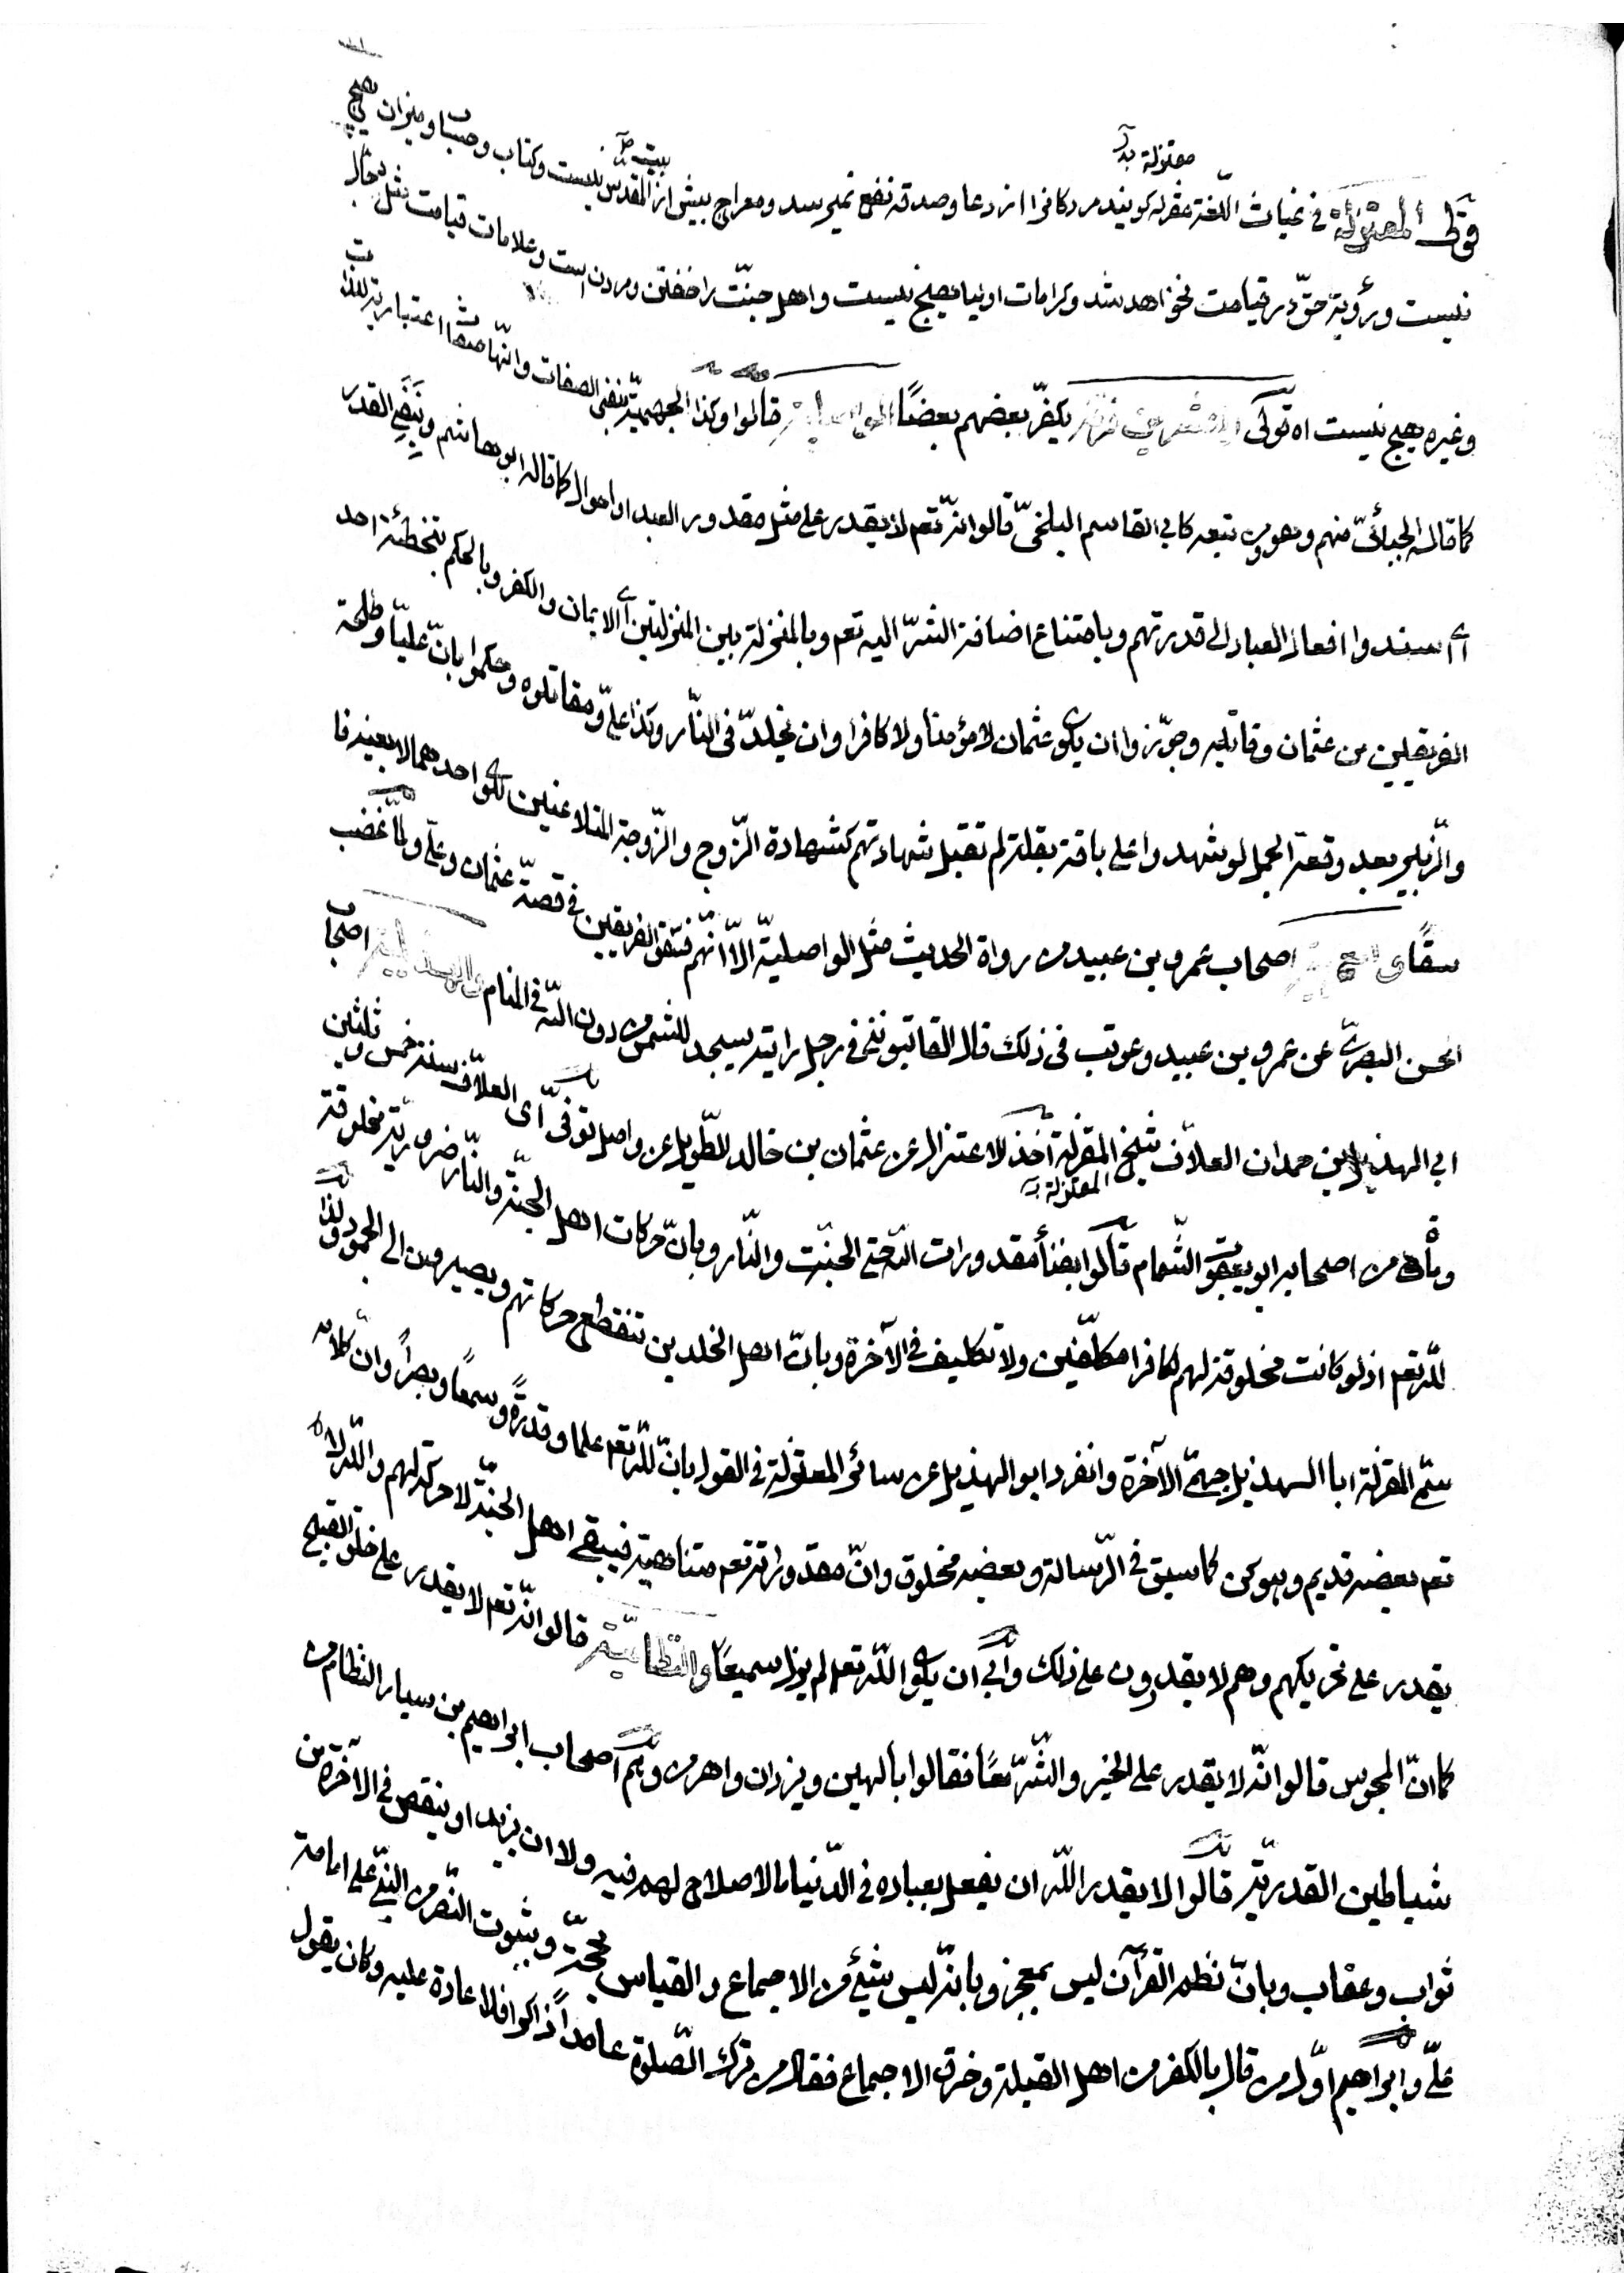 معتزلة بدل
قوله المعتزلة في غياث اللغة معتزله كويند مردكانرا از دعا وصدقه نفع نميرسد ومعراج بيش از بيت المقدس نيست وكتاب وحساب وميزان هيچ
نيست ورؤية حق در قيامت نخواهد شد وكرامات اوليا هيچ نيست واهل جنت را خفتن ومردن است وعلامات قيامت مثل دجال
وغيره هيچ نيست اه قوله يكفر بعضهم بعضًا قالوا وكذا الجهمية بنفي الصفات وانها صفات اعتبارية للذات
كما قاله الجبائي منهم وهو ومن تبعه كابي القاسم البلخي قالوا انه تعم لا يقدر على مثل مقدور العبد او احوال كما قاله ابو هاشم وبنفي القدر
اي اسندوا افعال العباد الى قدرتهم وبامتناع اضافة الشر اليه تعم وبالمنزلة بين المنزلتين اي الايمان والكفر وبالحكم بتخطئة احد
الفريقين من عثمان وقاتليه وجوزوا ان يكون عثمان لا مؤمنا ولا كافرا وان يخلد في النار وكذا علي ومقاتلوه وحكموا بان عليا وطلحة
والزبير بعد وقعة الجمل لو شهدوا على باقة بقلة لم تقبل شهادتهم كشهادة الزوج والزوجة المتلاعنين لكون احدهما لا بعينه فا
سقًا اصحاب عمرو بن عبيد من رواة الحديث مثل الواصلية الا انهم فسقوا الفريقين في قصة عثمان وعلي ولما غضب
الحسن البصري عن عمرو بن عبيد وعوتب في ذلك قال اتعاتبونني في رجل رايته يسجد للشمس دون الله في المنام والهذيلية اصحاب
ابي الهذيل بن حمدان العلاف شيخ المعتزلة اخذ الاعتزال عن عثمان بن خالد الطويل عن واصل توفي اي العلاف سنة خمس وثلثين
المعتزلة
ومأة من اصحابه ابو يعقوب الشحام قالوا بفناء مقدورات الله حتى الجنة والنار وبان حركات اهل الجنة والنار ضرورية مخلوقة
لله تعم اذ لو كانت مخلوقة لهم لكانوا مكلفين ولا تكليف في الآخرة وبان اهل الخلدين تنقطع حركاتهم ويصيرون الى الجمود ولذا
سمي المعتزلة ابا الهذيل جهمي الآخرة وانفرد ابو الهذيل عن سائر المعتزلة في القول بان لله تعم علما وقدرةً وسمعًا وبصرًا وان كلامه
تعم بعضه قديم وهو كن كما سبق في الرسالة وبعضه مخلوق وان مقدوراته تعم متناهية فيبقى اهل الجنة لا حركة لهم والله لا
يقدر على تحريكهم وهم لا يقدرون على ذلك وابى ان يكون الله تعم لم يزل سميعًا والنظامية قالوا انه تعم لا يقدر على خلق القبيح
كما ان المجوس قالوا انه لا يقدر على الخير والشر معًا فقالوا بالهين ويزدان واهرمن وهم اصحاب ابراهيم بن سيار النظام من
شياطين القدرية قالوا لا يقدر الله ان يفعل بعباده في الدنيا ما لا صلاح لهم فيه ولا ان يزيد او ينقص في الآخرة من
ثواب وعقاب وبان نظم القرآن ليس بمعجز وبانه ليس شيء من الاجماع والقياس بحجة وبثبوت النص من النبي على امامة
علي وابراهيم اول من قال بالكفر من اهل القبلة وخرق الاجماع فقال من ترك الصلوة عامدًا ذاكرا فلا اعادة عليه وكان يقول